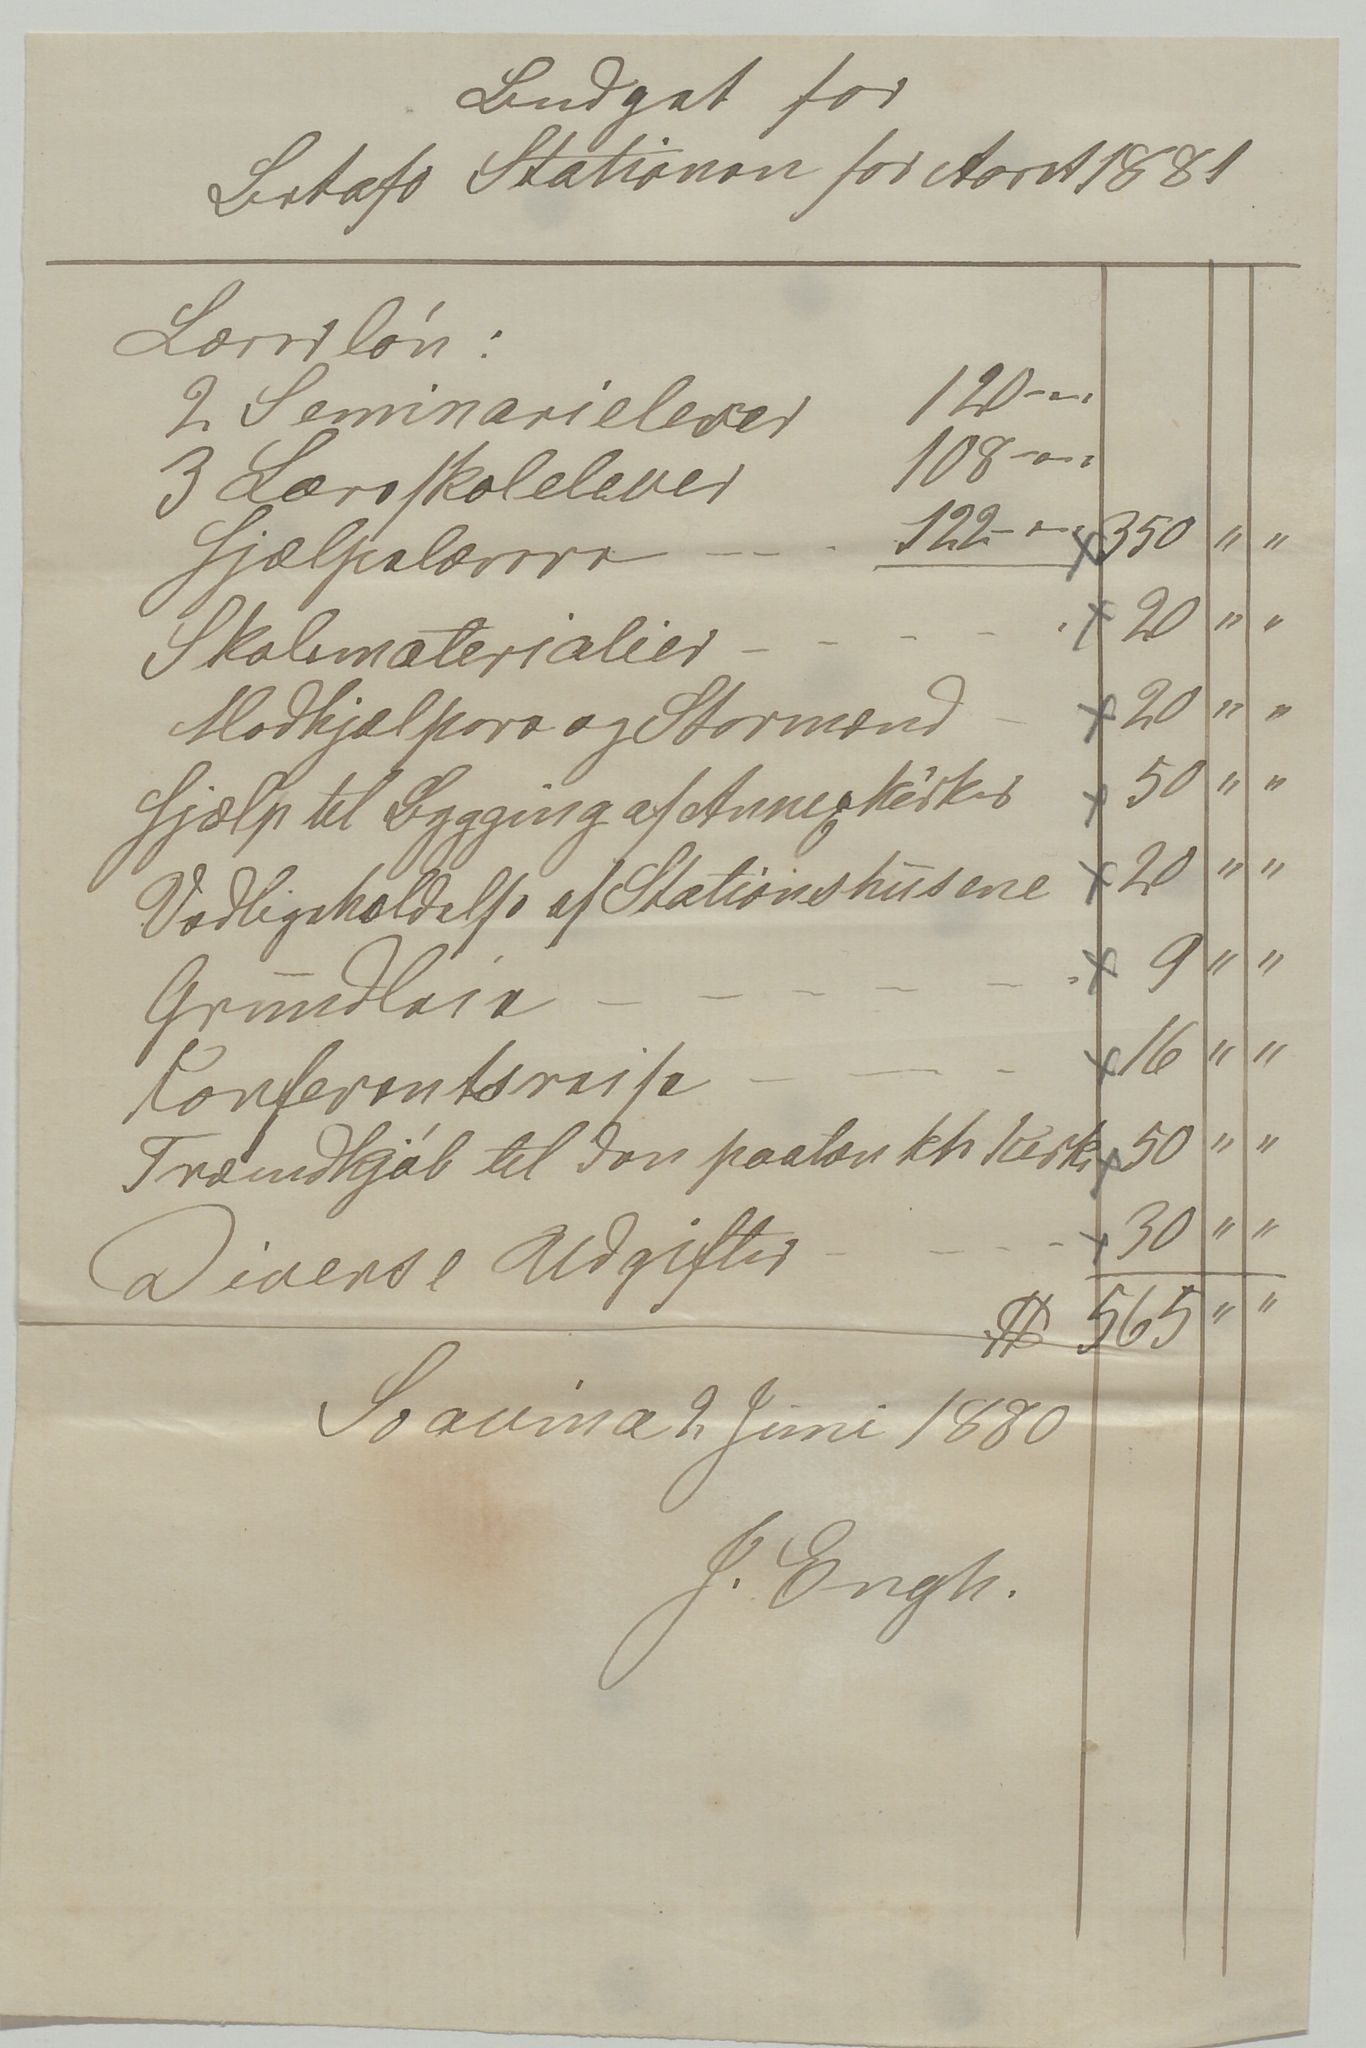 Budget for
Betafo Stationen for Aaret 1881
Lærerlön:
2 Seminarielever 120 " "
3 Læreskolelever 108 " "
Hjælpelærere - - - 122 " " x 350 " "
Skolematerialier - - - - x 20 " "
Medhjælpere og Stormænd - x 20 " "
Hjælp til Bygging af Annexkirker x 50 " "
Vedligeholdelse af Stationshusene x 20 " "
Grundleie - - - - - x 9 " "
Conferentsreise - - - x 16 " "
Træindkjöb til den paatænkte Kirke x 50 " "
Diverse Udgifter - - - - x 30 " "
$ 565 " "
Soavina 2 Juni 1880
J. Engh.